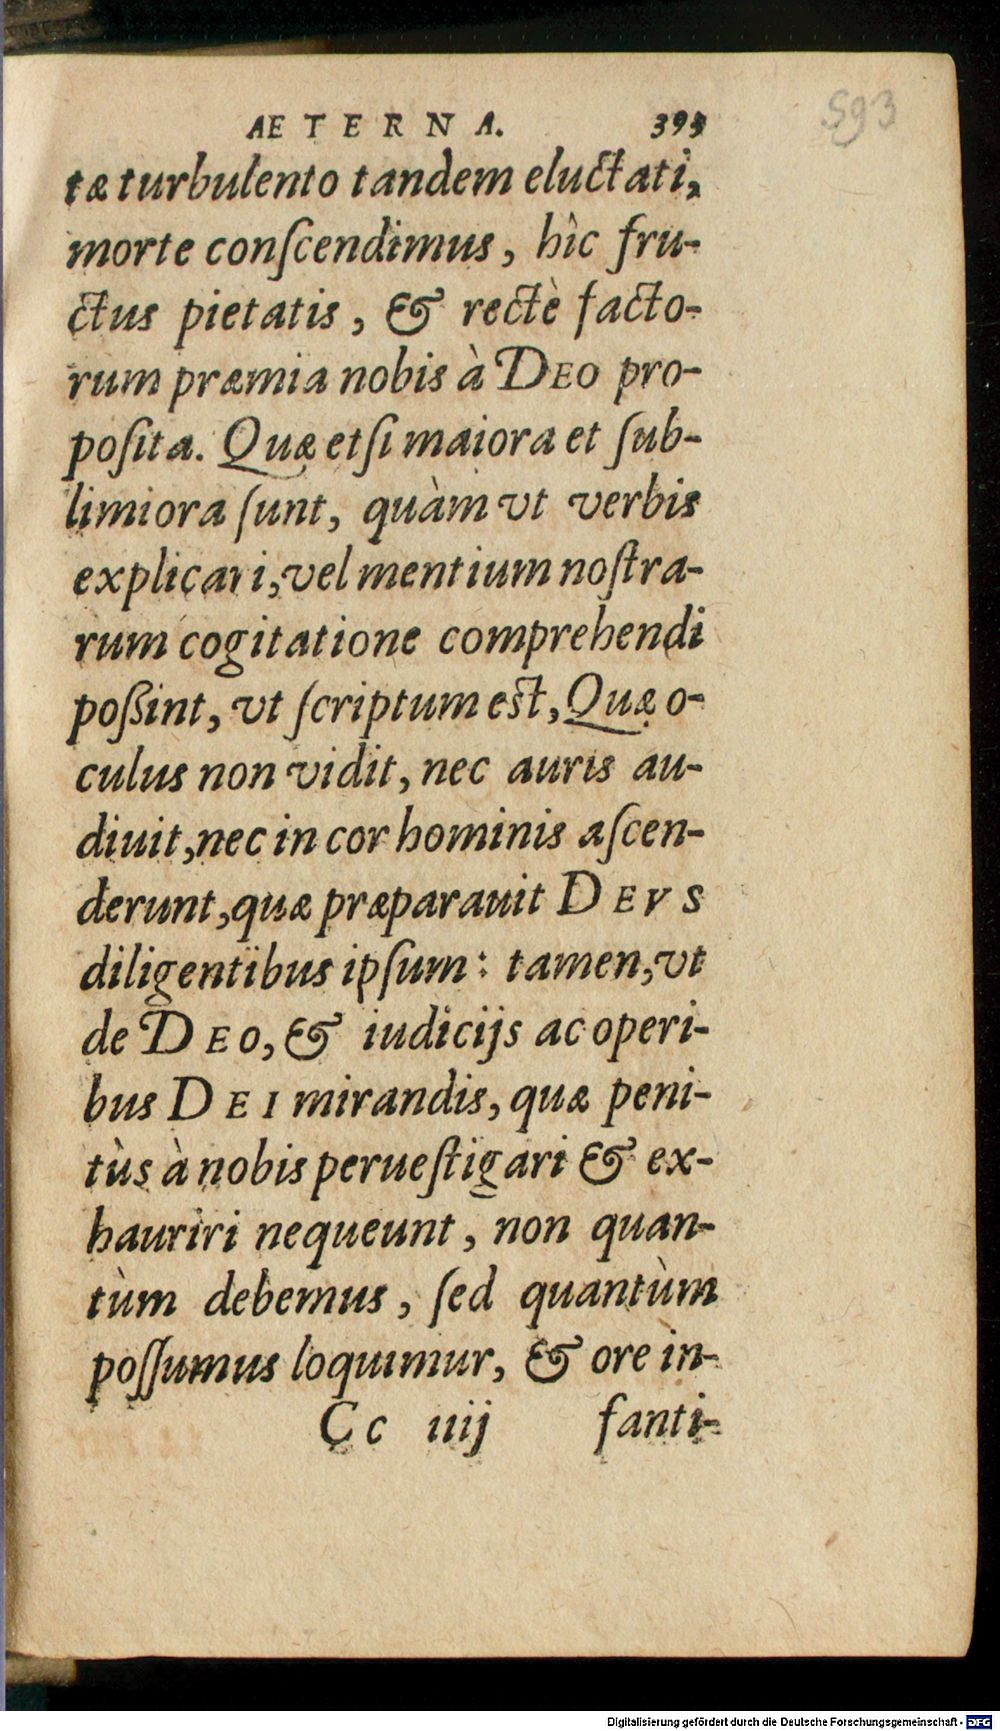 AETERNA. 393
593
tæ turbulento tandem eluctati,
morte conſcendimus, hîc fru-
ctus pietatis, & rectè facto-
rum præmia nobis à DEO pro-
poſita. Quæ etſi maiora et ſub-
limiora ſunt, quàm vt verbis
explicari, vel mentium noſtra-
rum cogitatione comprehendi
poßint, vt ſcriptum eſt, Quæ o-
culus non vidit, nec auris au-
diuit, nec in cor hominis aſcen-
derunt, quæ præparauit DEVS
diligentibus ipſum: tamen, vt
de DEO, & iudicijs ac operi-
bus DEI mirandis, quæ peni-
tùs à nobis perueſtigari & ex-
hauriri nequeunt, non quan-
tùm debemus, ſed quantùm
poſſumus loquimur, & ore in-
Cc iiij fanti-
Digitalisierung gefördert durch die Deutsche Forschungsgemeinschaft - DFG